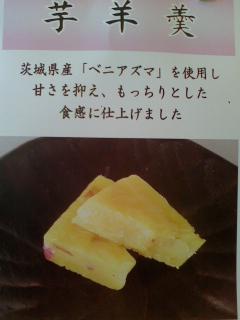 芋羊羹
茨城県産「ベニアズマ」を使用し
甘さを抑え、もっちりとした
食感に仕上げました